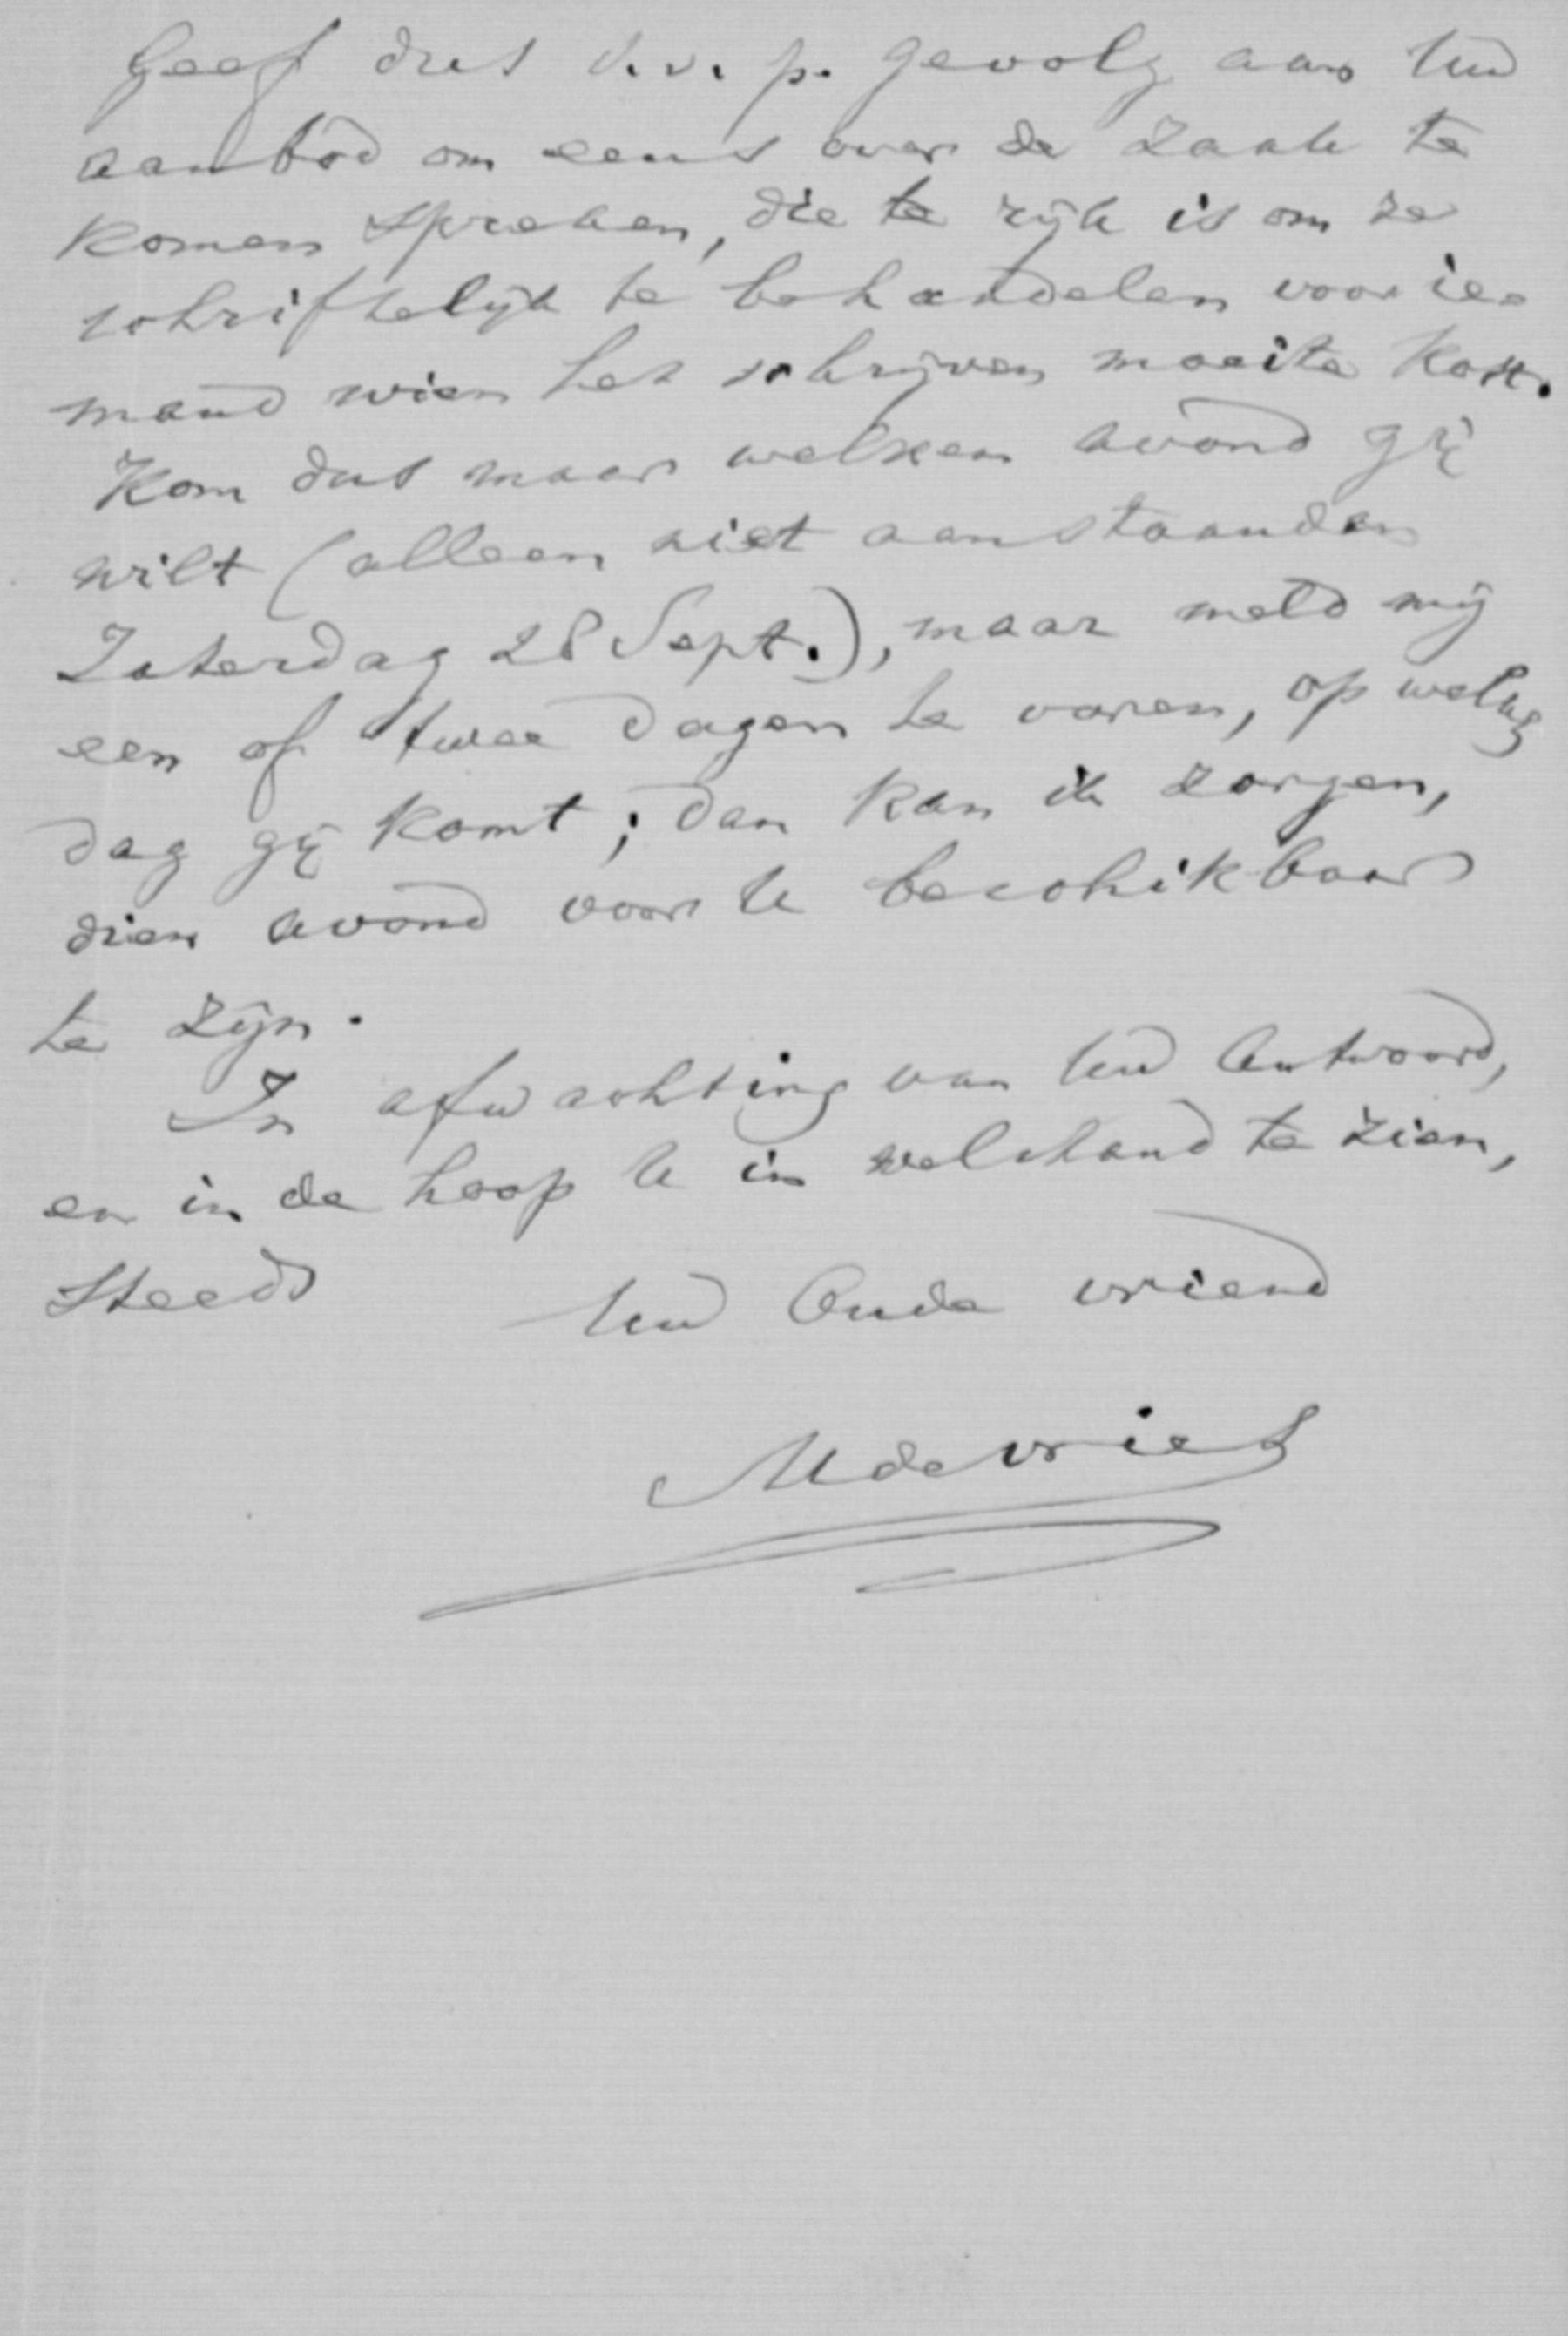 Geef dus s.v.p. gevolg aan Uw
aanbod om eens over de zaak te
komen spreken, die te rijk is om ze
schriftelijk te behandelen voor ie-
mand wien het schrijven moeite kost.
Kom dus maar welken avond gij
wilt (alleen niet aanstaanden
Zaterdag 28 Sept.), maar meld mij
een of twee dagen te voren, op welken
dag gij komt; dan kan ik zorgen,
dien avond voor U beschikbaar
te zijn.
In afwachting van Uw Antwoord,
en in de hoop U in welstand te zien,
steeds
Uw Oude vriend
M de Vries